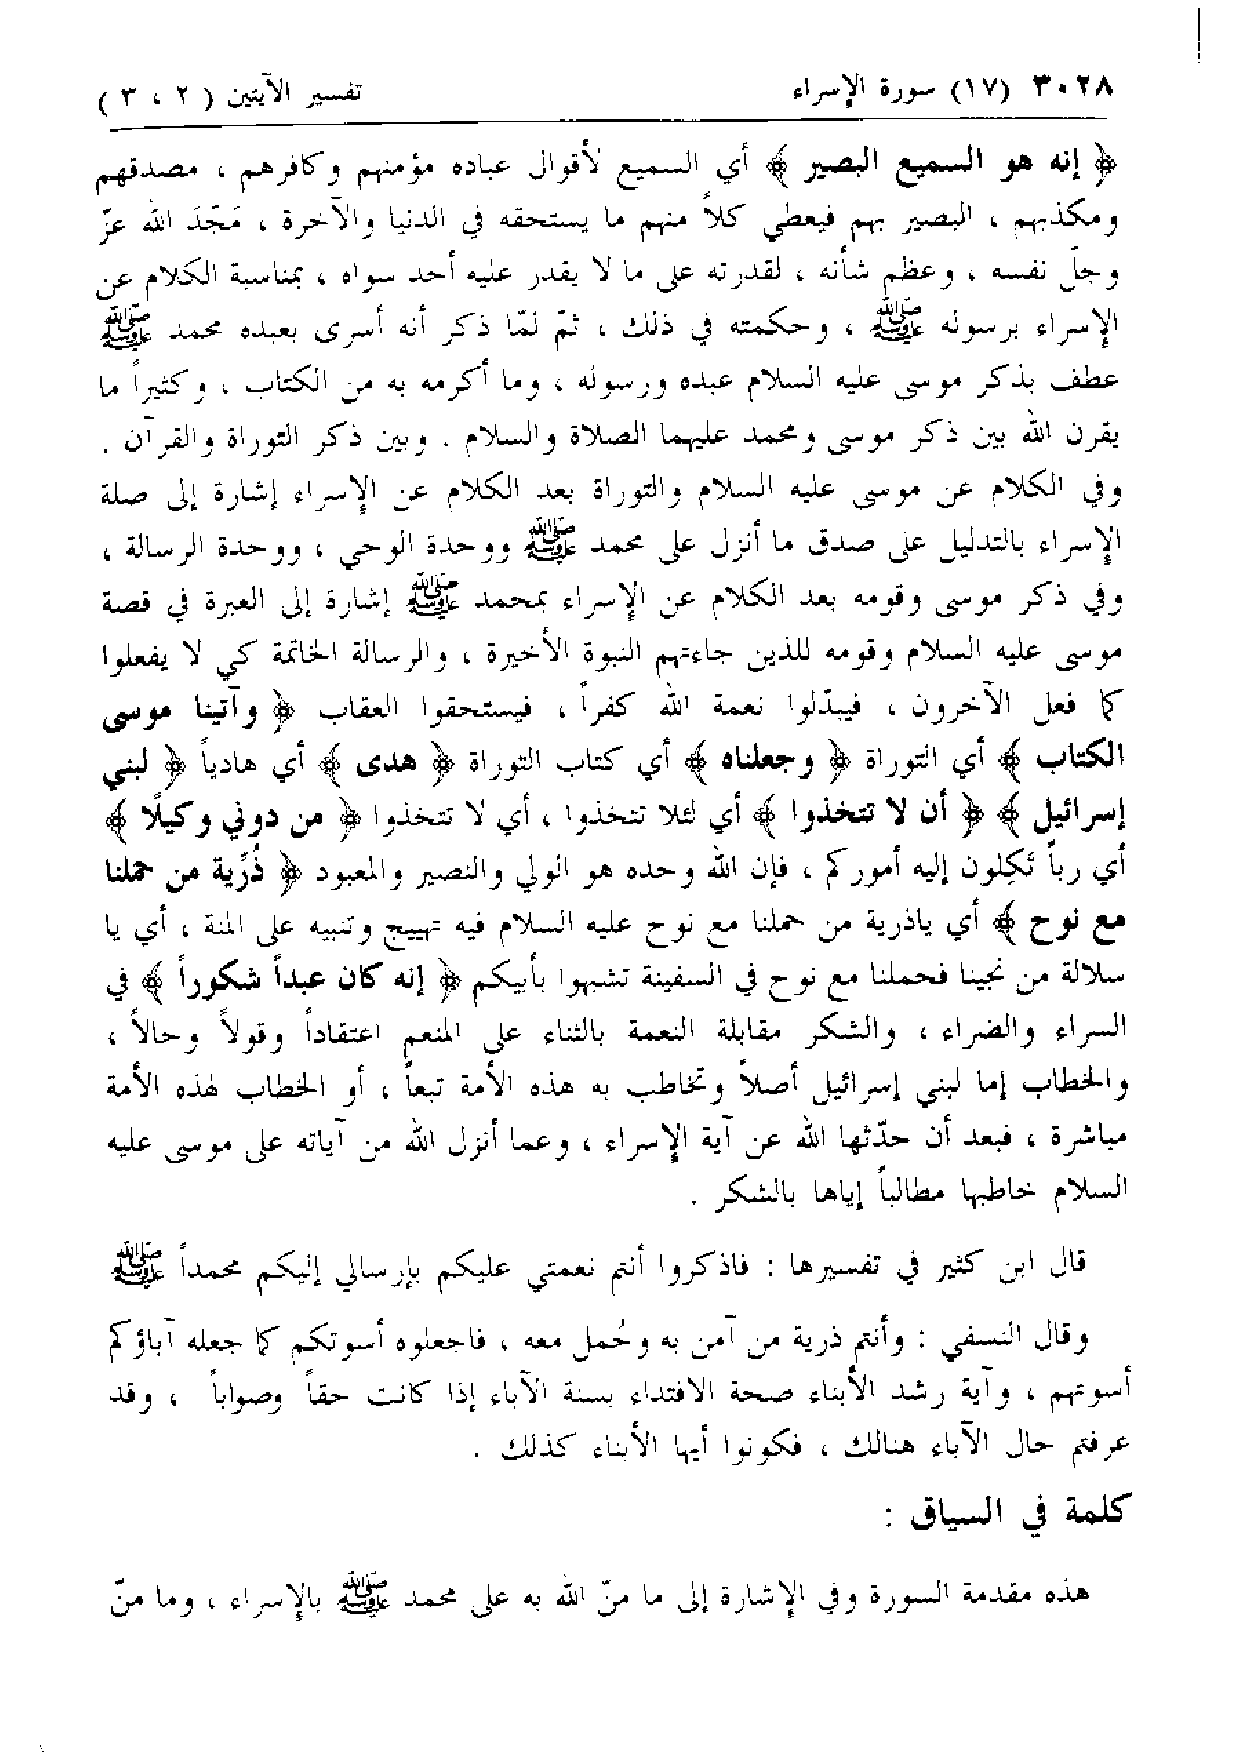 ٣٠٢٨ (١٧) سورة الإسراء تفسير الآيتين ( ٢ ، ٣ )
﴿ إنه هو السميع البصير ﴾ أي السميع لأقوال عباده مؤمنهم وكافرهم ، مصدقهم
ومكذبهم ، البصير بهم فيعطي كلاً منهم ما يستحقه في الدنيا والآخرة ، مَجّدَ الله عزّ
وجلّ نفسه ، وعظم شأنه ، لقدرته على ما لا يقدر عليه أحد سواه ، بمناسبة الكلام عن
الإسراء برسوله ﷺ ، وحكمته في ذلك ، ثمّ لمّا ذكر أنه أسرى بعبده محمد ﷺ
عطف بذكر موسى عليه السلام عبده ورسوله ، وما أكرمه به من الكتاب ، وكثيراً ما
يقرن الله بين ذكر موسى ومحمد عليهما الصلاة والسلام . وبين ذكر التوراة والقرآن .
وفي الكلام عن موسى عليه السلام والتوراة بعد الكلام عن الإسراء إشارة إلى صلة
الإسراء بالتدليل على صدق ما أنزل على محمد ﷺ ووحدة الوحي ، ووحدة الرسالة ،
وفي ذكر موسى وقومه بعد الكلام عن الإسراء بمحمد ﷺ إشارة إلى العبرة في قصة
موسى عليه السلام وقومه للذين جاءتهم النبوة الأخيرة ، والرسالة الخاتمة كي لا يفعلوا
كما فعل الآخرون ، فيبدّلوا نعمة الله كفراً ، فيستحقوا العقاب ﴿ وآتينا موسى
الكتاب ﴾ أي التوراة ﴿ وجعلناه ﴾ أي كتاب التوراة ﴿ هدى ﴾ أي هادياً ﴿ لبني
إسرائيل ﴾ ﴿ أن لا تتخذوا ﴾ أي لئلا تتخذوا ، أي لا تتخذوا ﴿ من دوني وكيلًا ﴾
أي رباً تَكِلون إليه أموركم ، فإن الله وحده هو الولي والنصير والمعبود ﴿ ذُرّيةَ من حملنا
مع نوح ﴾ أي ياذرية من حملنا مع نوح عليه السلام فيه تهييج وتنبيه على المنة ، أي يا
سلالة من نجينا فحملنا مع نوح في السفينة تشبهوا بأبيكم ﴿ إنه كان عبداً شكوراً ﴾ في
السراء والضراء ، والشكر مقابلة النعمة بالثناء على المنعم اعتقاداً وقولاً وحالاً ،
والخطاب إما لبني إسرائيل أصلاً وتخاطب به هذه الأمة تبعاً ، أو الخطاب لهذه الأمة
مباشرة ، فبعد أن حدّثها الله عن آية الإسراء ، وعما أنزل الله من آياته على موسى عليه
السلام خاطبها مطالباً إياها بالشكر .
قال ابن كثير في تفسيرها : فاذكروا أنتم نعمتي عليكم بإرسالي إليكم محمداً ﷺ
وقال النسفي : وأنتم ذرية من آمن به وحُمل معه ، فاجعلوه أسوتكم كما جعله آباؤكم
أسوتهم ، وآية رشد الأبناء صحة الاقتداء بسنة الآباء إذا كانت حقاً وصواباً ، وقد
عرفتم حال الآباء هنالك ، فكونوا أيها الأبناء كذلك .
كلمة في السياق :
هذه مقدمة السورة وفي الإشارة إلى ما منّ الله به على محمد ﷺ بالإسراء ، وما منّ